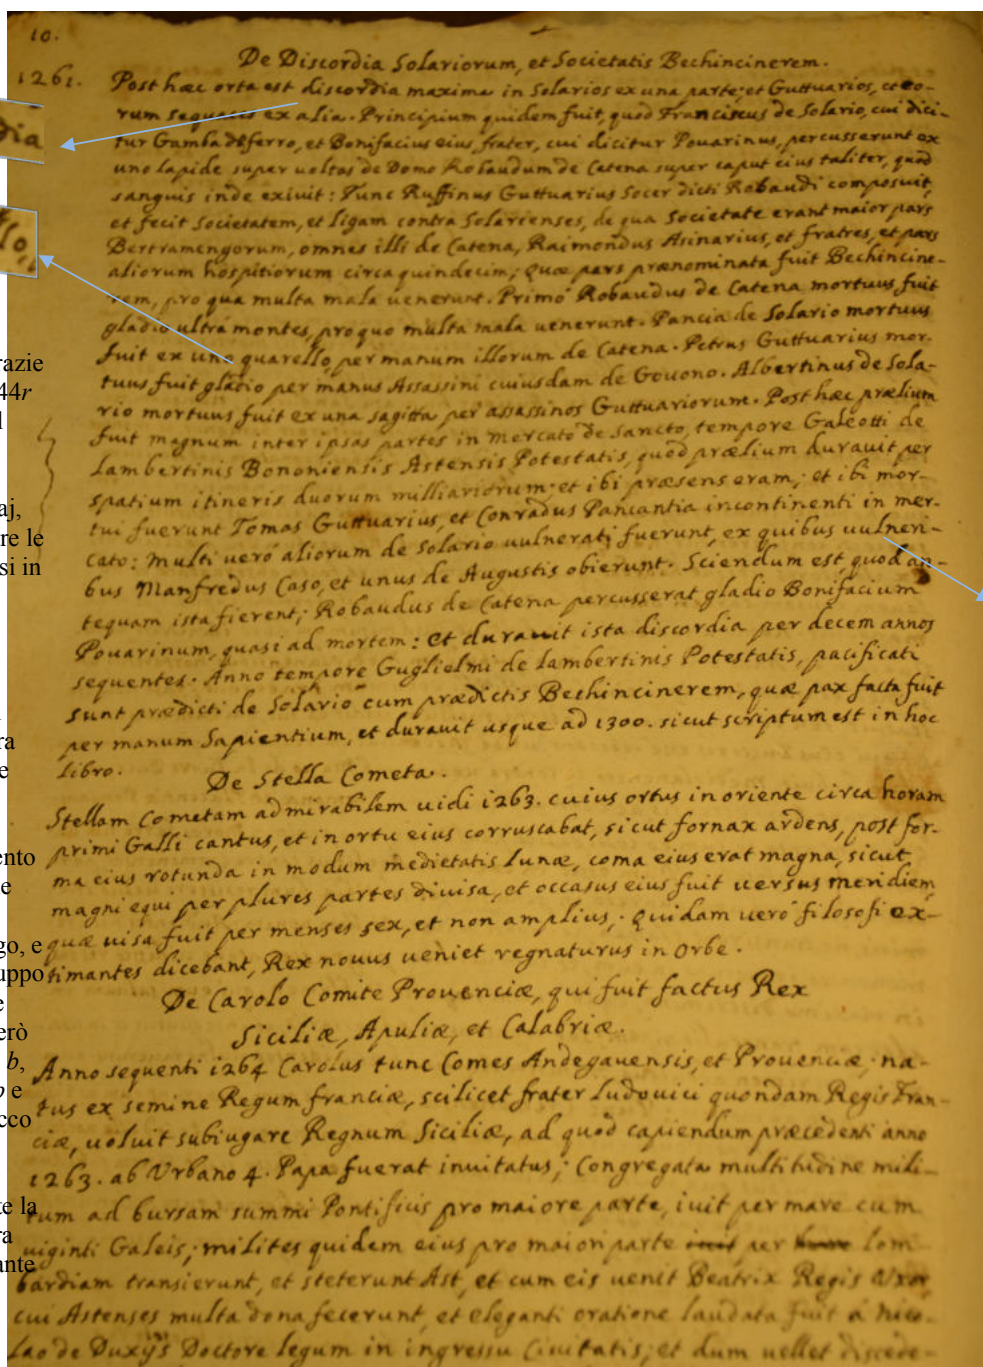 10.
De Discordia Solariorum, et Societatis Bechincinerem.
1261. Post hæc orta est discordia maxima in Solarios ex una parte, et Guttuarios, et eo-
dia
rum sequaces ex alia. Principium quidem fuit, quod Franciscus de Solario, cui dici-
tur Gamba de ferro, et Bonifacius eius frater, cui dicitur Pouarinus, percusserunt ex
uno lapide super uoltas de Domo Robaudum de Catena super caput eius taliter, quod
sanguis inde exiuit: Tunc Ruffinus Guttuarius Socer dicti Robaudi composuit,
et fecit Societatem, et ligam contra Solarienses, de qua Societate erant maior pars
llo,
Bertramengorum, omnes illi de Catena, Raimondus Asinarius, et fratres, et pars
aliorum hospitiorum circa quindecim; Quæ pars prænominata fuit Bechincine-
rem, pro qua multa mala uenerunt. Primò Robaudus de Catena mortuus fuit
gladio ultra montes, pro quo multa mala uenerunt. Pancia de Solario mortuus
fuit ex uno quarello, per manum illorum de Catena. Petrus Guttuarius mor-
razie
tuus fuit gladio per manus Assassini cuiusdam de Gouono. Albertinus de Sola-
44r
rio mortuus fuit ex una sagitta per assassinos Guttuariorum. Post hæc prælium
l
fuit magnum inter ipsas partes in Mercato de Sancto, tempore Galeotti de
Lambertinis Bononiensis Astensis Potestatis, quod prælium durauit per
spatium itineris duorum milliariorum; et ibi præsens eram; et ibi mor-
aj,
tui fuerunt Tomas Guttuarius, et Conradus Pancantia incontinenti in mer-
re le
cato: multi uerò aliorum de Solario uulnerati fuerunt, ex quibus uulneri-
si in
bus Manfredus Caso, et unus de Augustis obierunt. Sciendum est, quod an-
tequam ista fierent; Robaudus de Catena percusserat gladio Bonifacium
Pouarinum, quasi ad mortem: Et durauit ista discordia per decem annos
sequentes. Anno tempore Guglielmi de Lambertinis Potestatis, pacificati
sunt prædicti de Solario cum prædictis Bechincinerem, quæ pax facta fuit
per manum Sapientium, et durauit usque ad 1300. sicut scriptum est in hoc
ra
libro.
e
De Stella Cometa.
Stellam Cometam admirabilem uidi 1263. cuius ortus in oriente circa horam
primi Galli cantus, et in ortu eius corruscabat, sicut fornax ardens, post for-
ento
ma eius rotunda in modum medietatis Lunæ, coma eius erat magna, sicut
e
magni equi per plures partes diuisa, et occasus eius fuit uersus meridiem,
go, e
quæ uisa fuit per menses sex, et non amplius; Quidam uerò filosofi ex-
uppo
timantes dicebant, Rex nouus ueniet regnaturus in Orbe.
e
De Carolo Comite Prouenciæ, qui fuit factus Rex
erò
Siciliæ, Apuliæ, et Calabriæ.
b,
Anno sequenti 1264 Carolus tunc Comes Andegauensis, et Prouenciæ, na-
o e
tus ex semine Regum franciæ, scilicet frater Ludouici quondam Regis Fran-
cco
ciæ, uoluit subiugare Regnum Siciliæ, ad quod capiendum præcedenti anno
1263. ab Urbano 4. Papa fuerat inuitatus; Congregata multitudine mili-
te la
tum ad bursam summi Pontificis pro maiore parte, iuit per mare cum
ra
uiginti Galeis; milites quidem eius pro maiori parte iuit per Lom-
ante
bardiam transierunt, et steterunt Ast, et cum eis uenit Beatrix Regis Uxor
cui Astenses multa dona fecerunt, et eleganti oratione laudata fuit à Nico-
lao de Duxijs Doctore legum in ingressu Ciuitatis; et dum uellet discede-